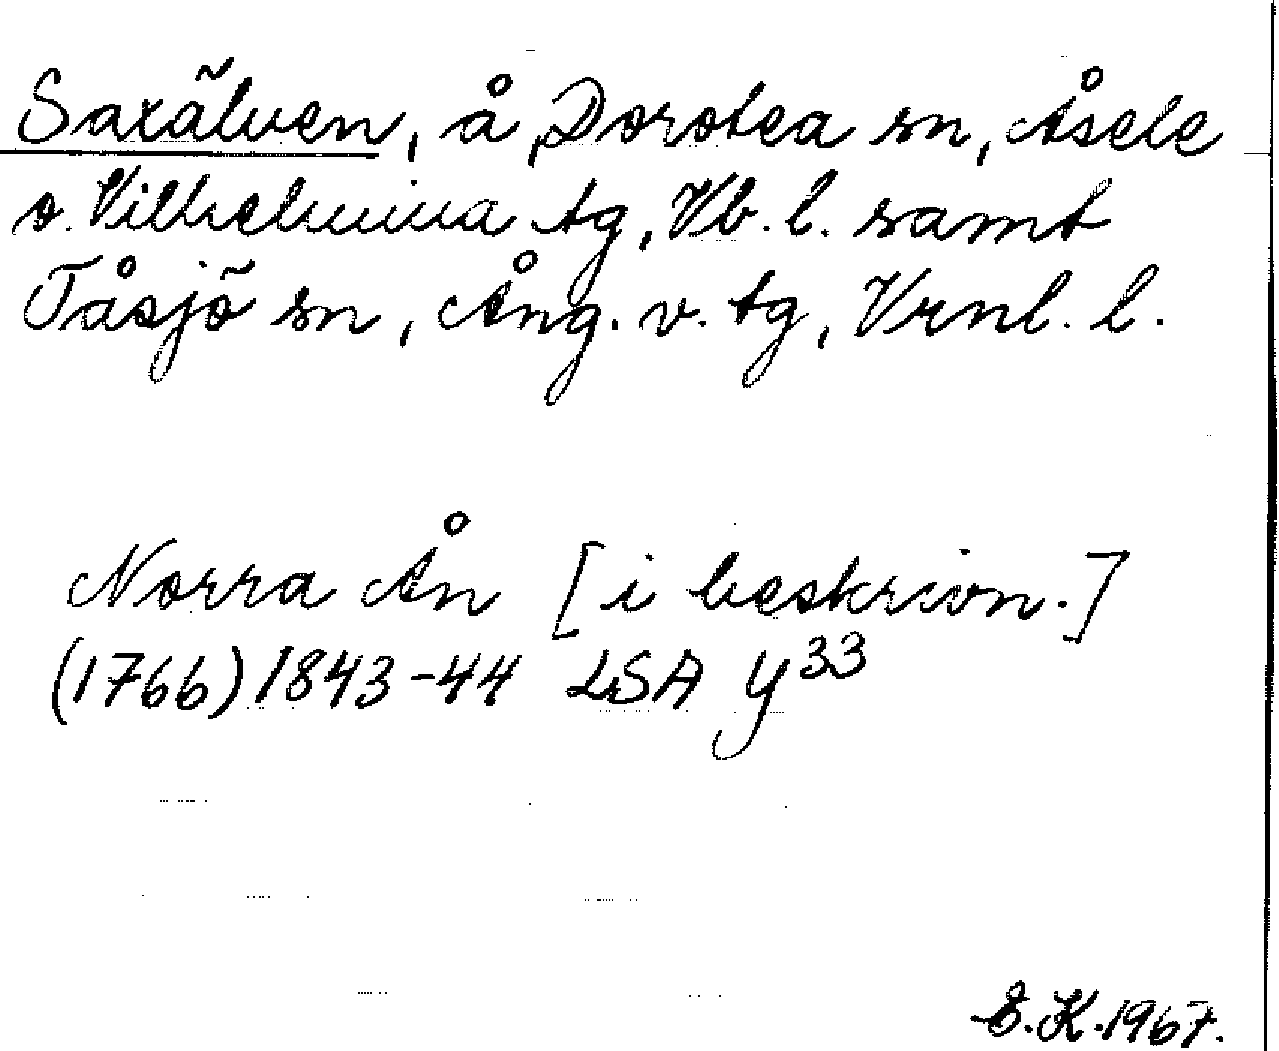 Saxälven, å, Dorotea sn, Åsele
o. Vilhelmina tg, Vb. l. samt
Tåsjö sn, Ång. v. tg, Vrnl. l.
Norra Ån [i beskrivn.]
(1766) 1843-44 LSA Y³³
E.K. 1967.